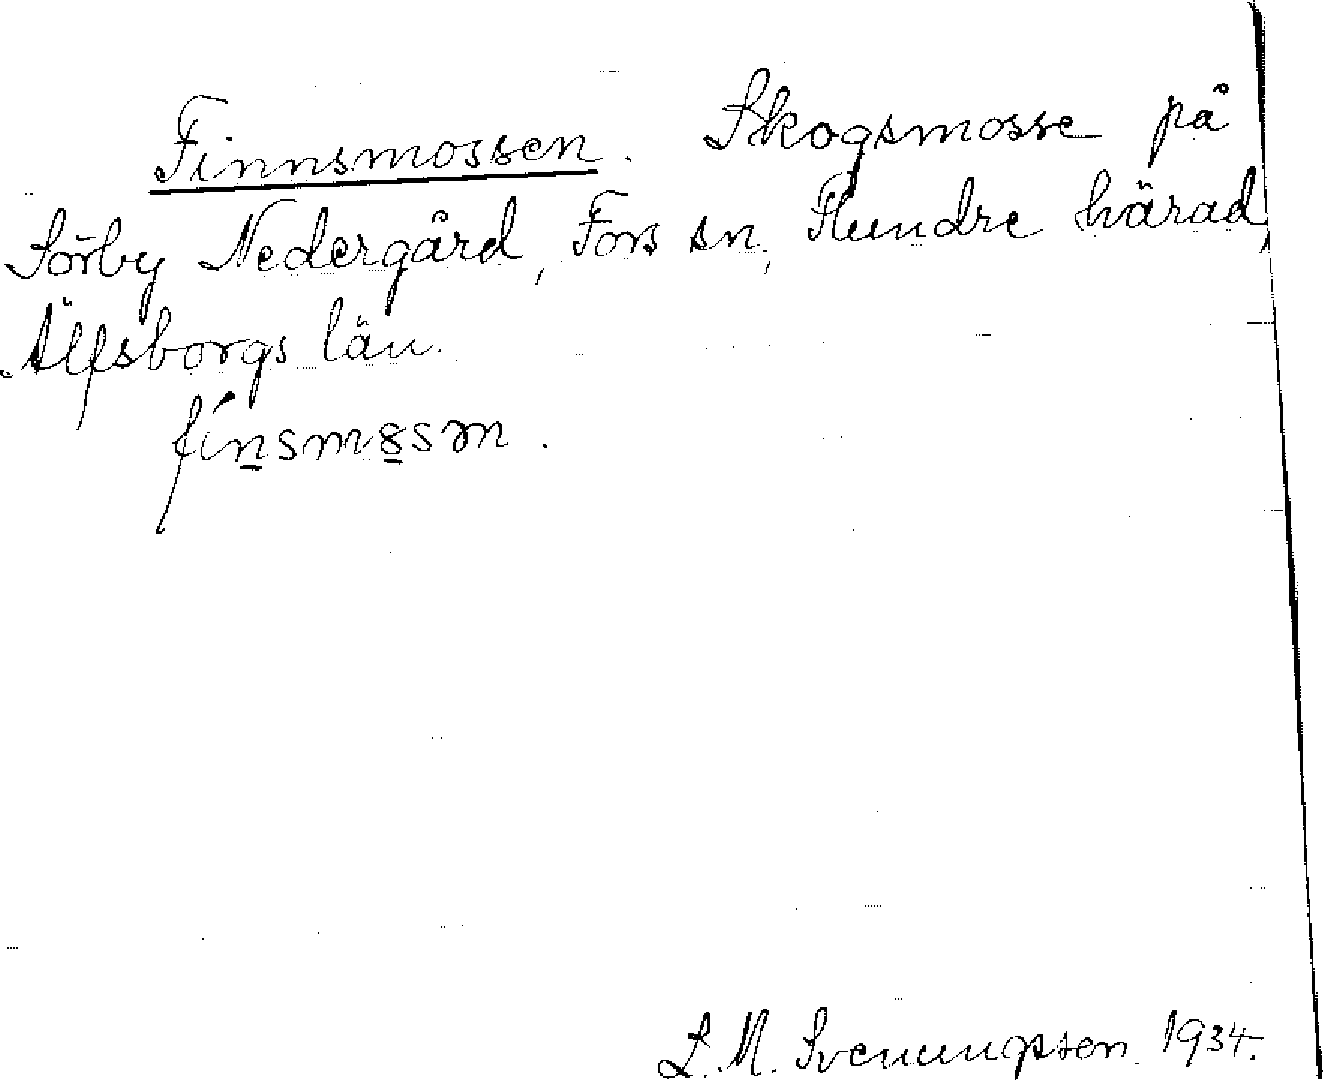 Finnsmossen. Skogsmosse på
Sörby Nedergård, Fors sn, Flundre härad,
Älfsborgs län.
fínsmȣsən.
L. M. Svenungsson 1934.